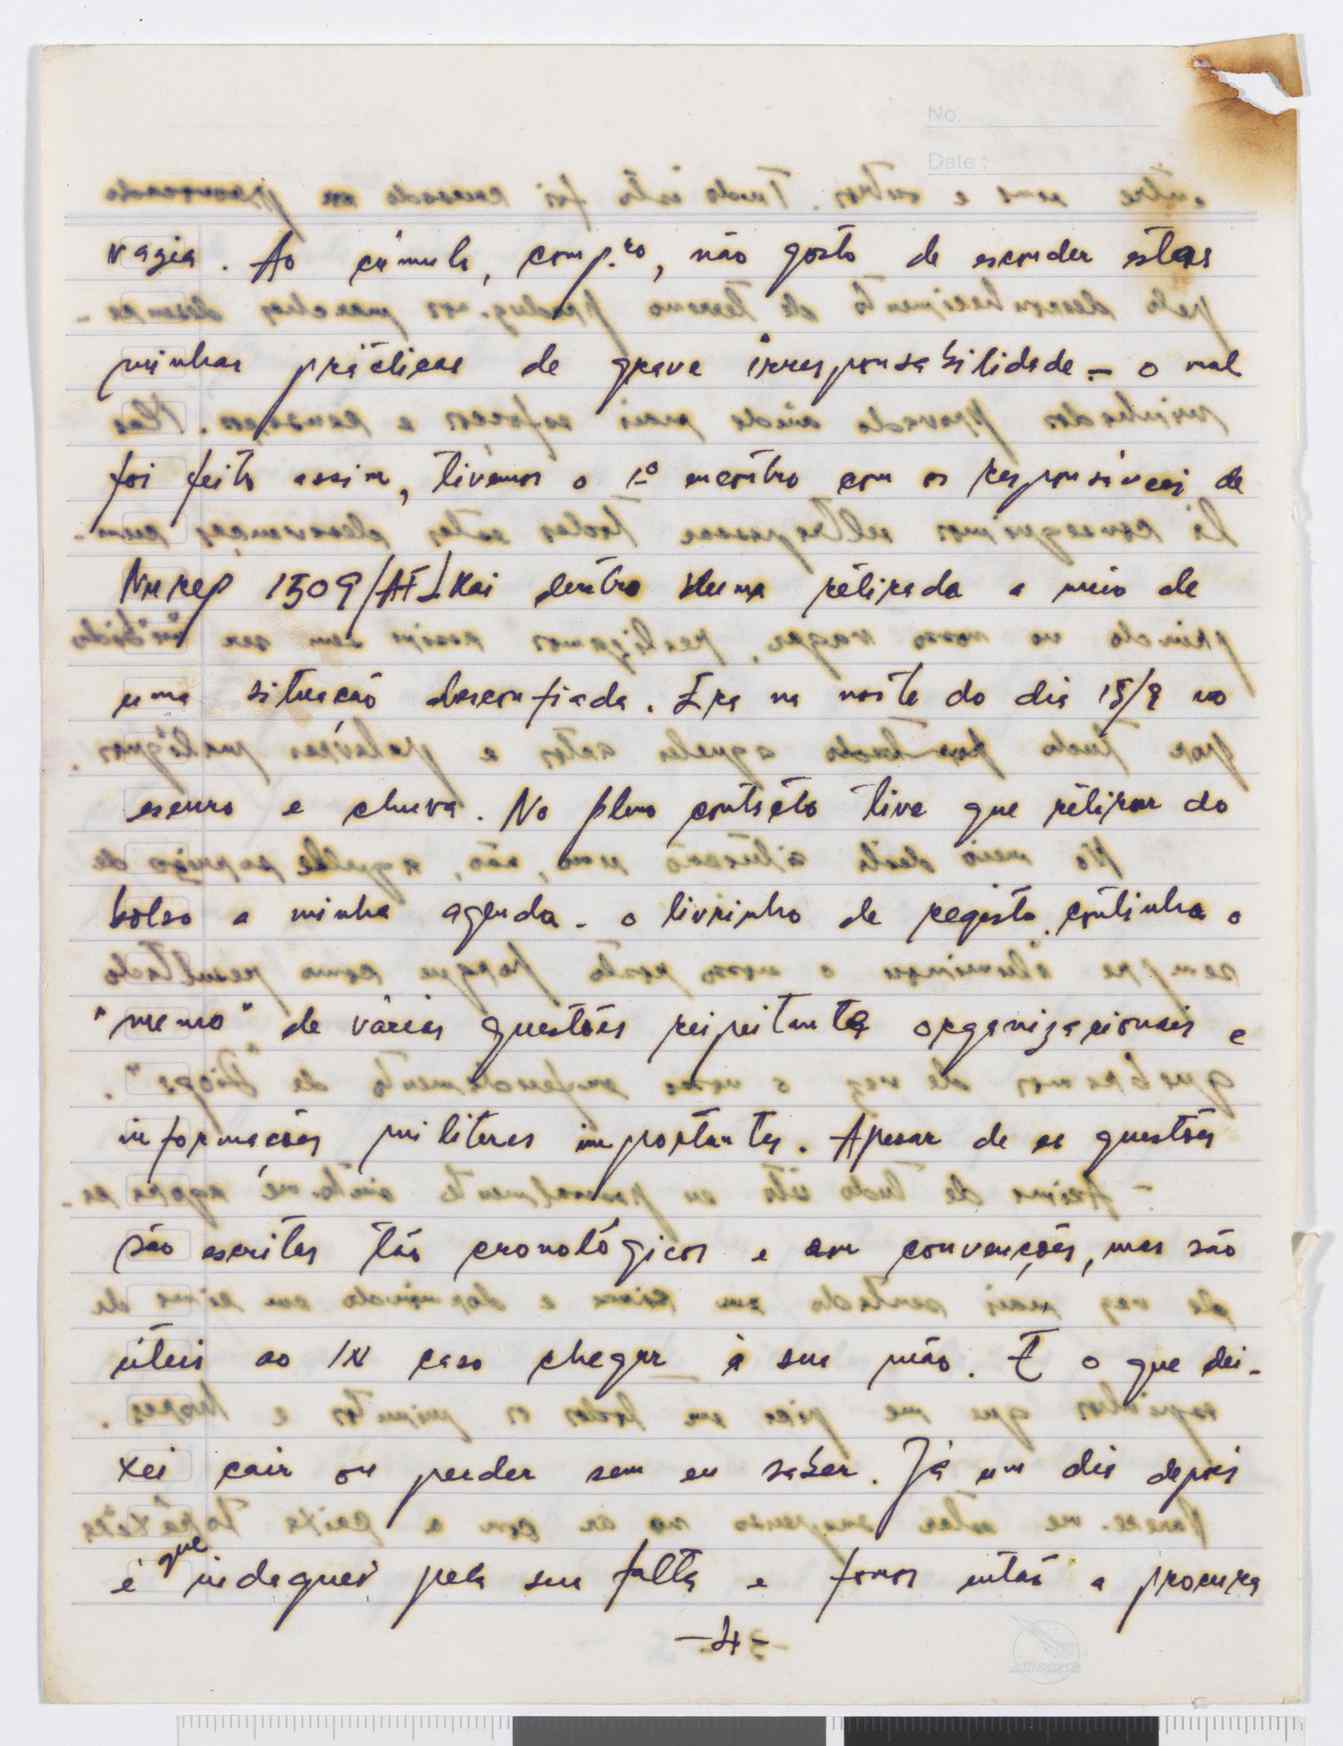 No.
Date :
vagia. Ao cúmulo, comp.ro, não gosto de esconder estas
minhas práticas de grave irresponsabilidade - o mal
foi feito assim, tivemos o 1º encontro com os responsáveis de
Nurep 1509/AF/Kai dentro duma retirada a meio de
uma situação desconfiada. Era na noite do dia 15/9 no
escuro e chuva. No pleno contacto tive que retirar do
bolso a minha agenda - o livrinho de registo continha o
"memo" de várias questões respeitante organizacionais e
informações militares importantes. Apesar de as questões
são escritas tão cronológicos e em convenções, mas são
úteis ao IN caso chegar à sua mão. E o que dei-
xei cair ou perder sem eu saber. Já um dia depois
é que indaguei pela sua falta e fomos então a procura
-4-